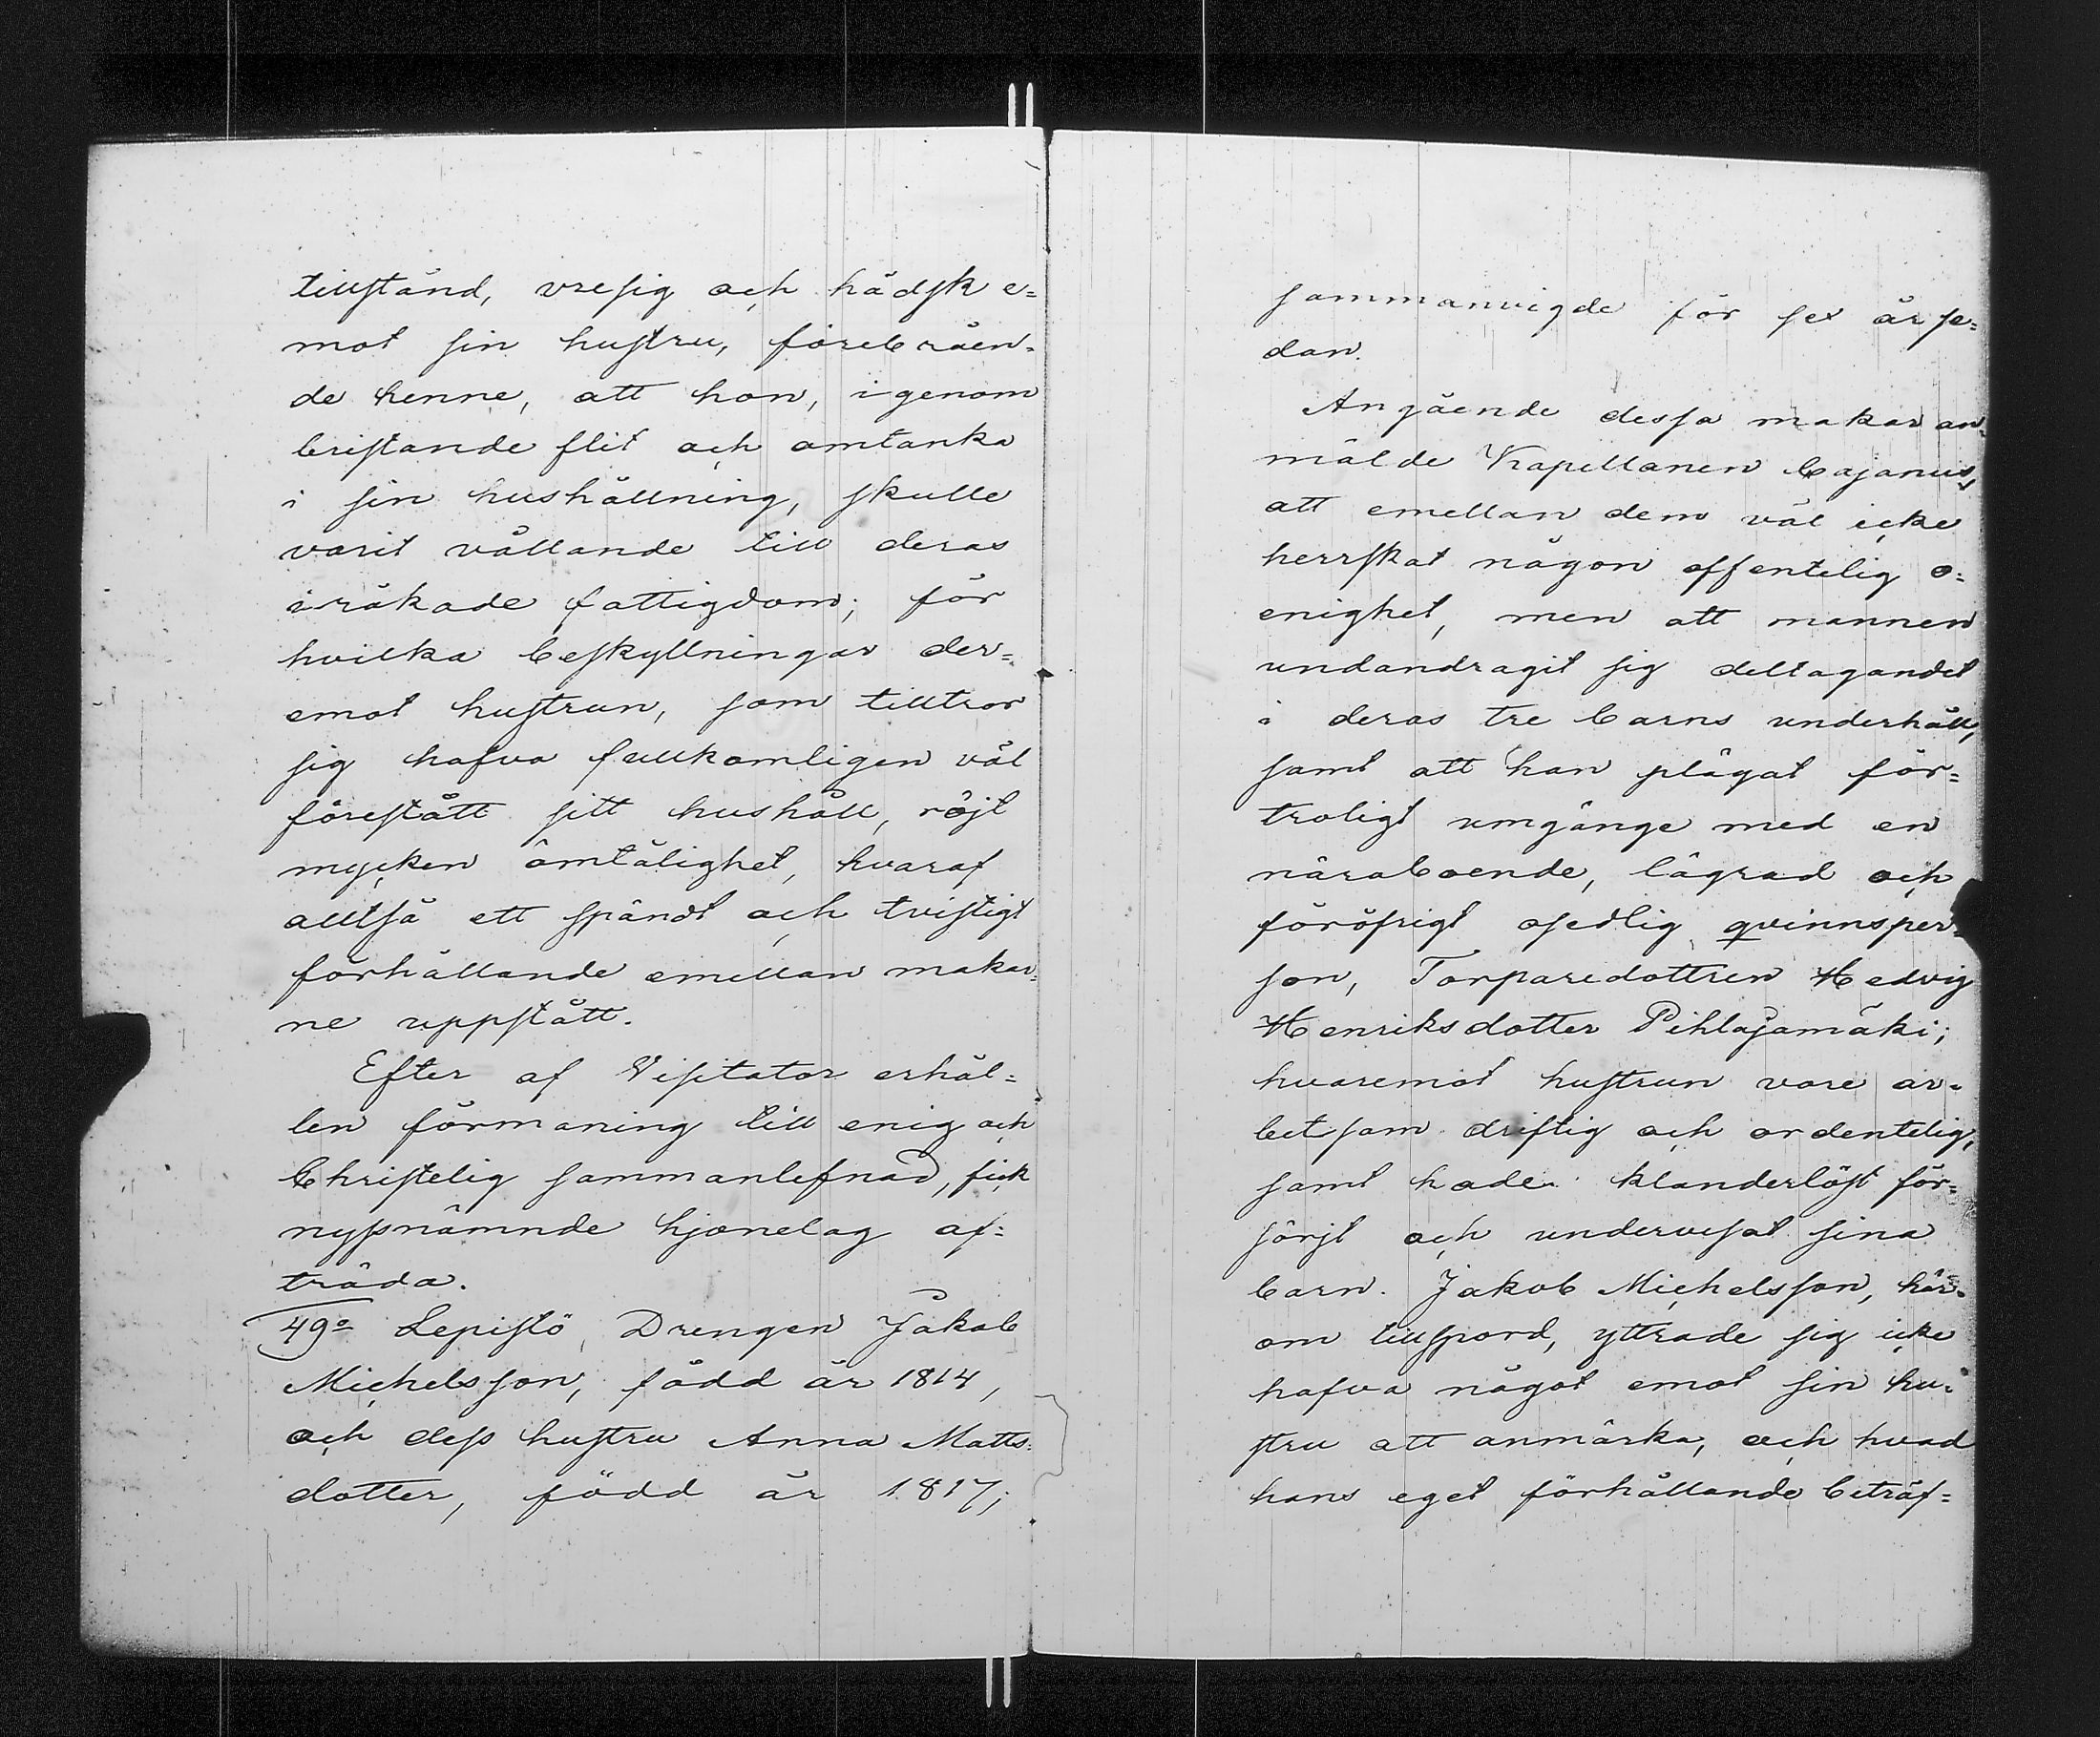 tillstånd, vresig och hädsk e=
mot sin hustru, förebråen=
de henne, att hon, igenom
bristande flit och omtanka
i sin hushållning, skulle
varit vållande till deras
iråkade fattigdom; för
hvilka beskyllningar der=
emot hustrun, som tilltror
sig hafva fullkomligen väl
förestått sitt hushåll, röjt
mycken ömtålighet, hvaraf
alltså ett spändt och tvistigt
förhållande emellan makar=
ne uppstått.
Efter af Visitator erhål=
len förmaning till enig och
Christelig sammanlefnad, fick
nyssnämnde hjonelag af=
träda.
49o Lepistö, Drengen Jakob
Michelsson, född år 1814,
och dess hustru Anna Matts=
dotter, född år 1817;
sammanvigde för sex år se=
dan.
Angående dessa makar an=
mälde Kapellanen Cajanus,
att emellan dem väl icke
herrskat någon offentelig o=
enighet, men att mannen
undandragit sig deltagandet
i deras tre barns underhåll,
samt att han plägat för=
troligt umgänge med en
näraboende, lägrad och
föröfrigt osedlig qvinnsper=
son, Torparedottren Hedvig
Henriksdotter Pihlajamäki;
hvaremot hustrun vore ar=
betsam driftig och ordentelig,
samt hade klanderlöst för=
sörjt och undervisat sina
barn. Jakob Michelsson, här=
om tillspord, yttrade sig icke
hafva något emot sin hu=
stru att anmärka, och hvad
hans eget förhållande beträf=